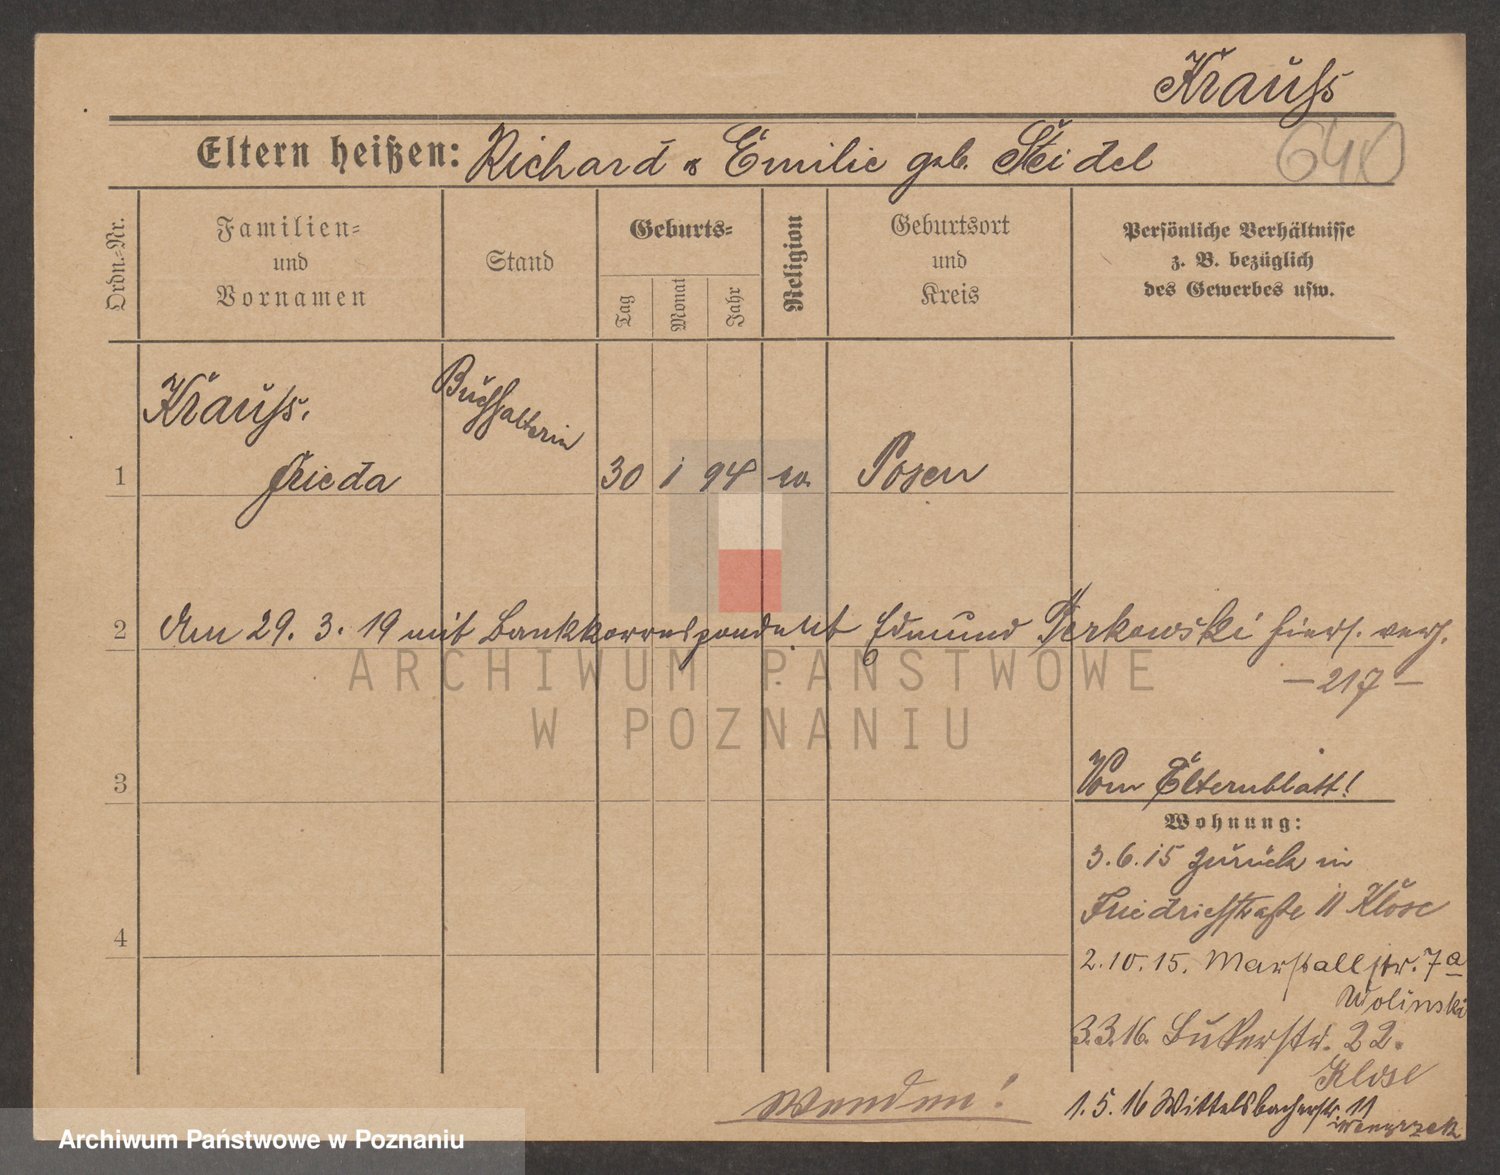 Krauss
640
Eltern heißen: Richard & Emilie geb. Seidel
Ordn.-Nr.
Familien-
und
Vornamen
Stand
Geburts-
Tag
Monat
Jahr
Religion
Geburtsort
und
Kreis
Persönliche Verhältnisse
z. B. bezüglich
des Gewerbes usw.
Krauss.
Buchhalterin
1 Frieda 30 1 94 ev. Posen
2 Am 29. 3. 19 mit Bankkorrespondent Edmund Perkowski hiers. verh.
— 217 —
ARCHIWUM PAŃSTWOWE
W POZNANIU
3 Vom Elternblatt!
Wohnung:
3.6.15 zurück in
4 Friedrichstraße 11 Klose
2.10.15. Marstallstr. 7a
Wolinski
3.3.16. Bukerstr. 22.
Klose
Wenden!
1.5.16 Wittelsbacherstr. 11
Archiwum Państwowe w Poznaniu